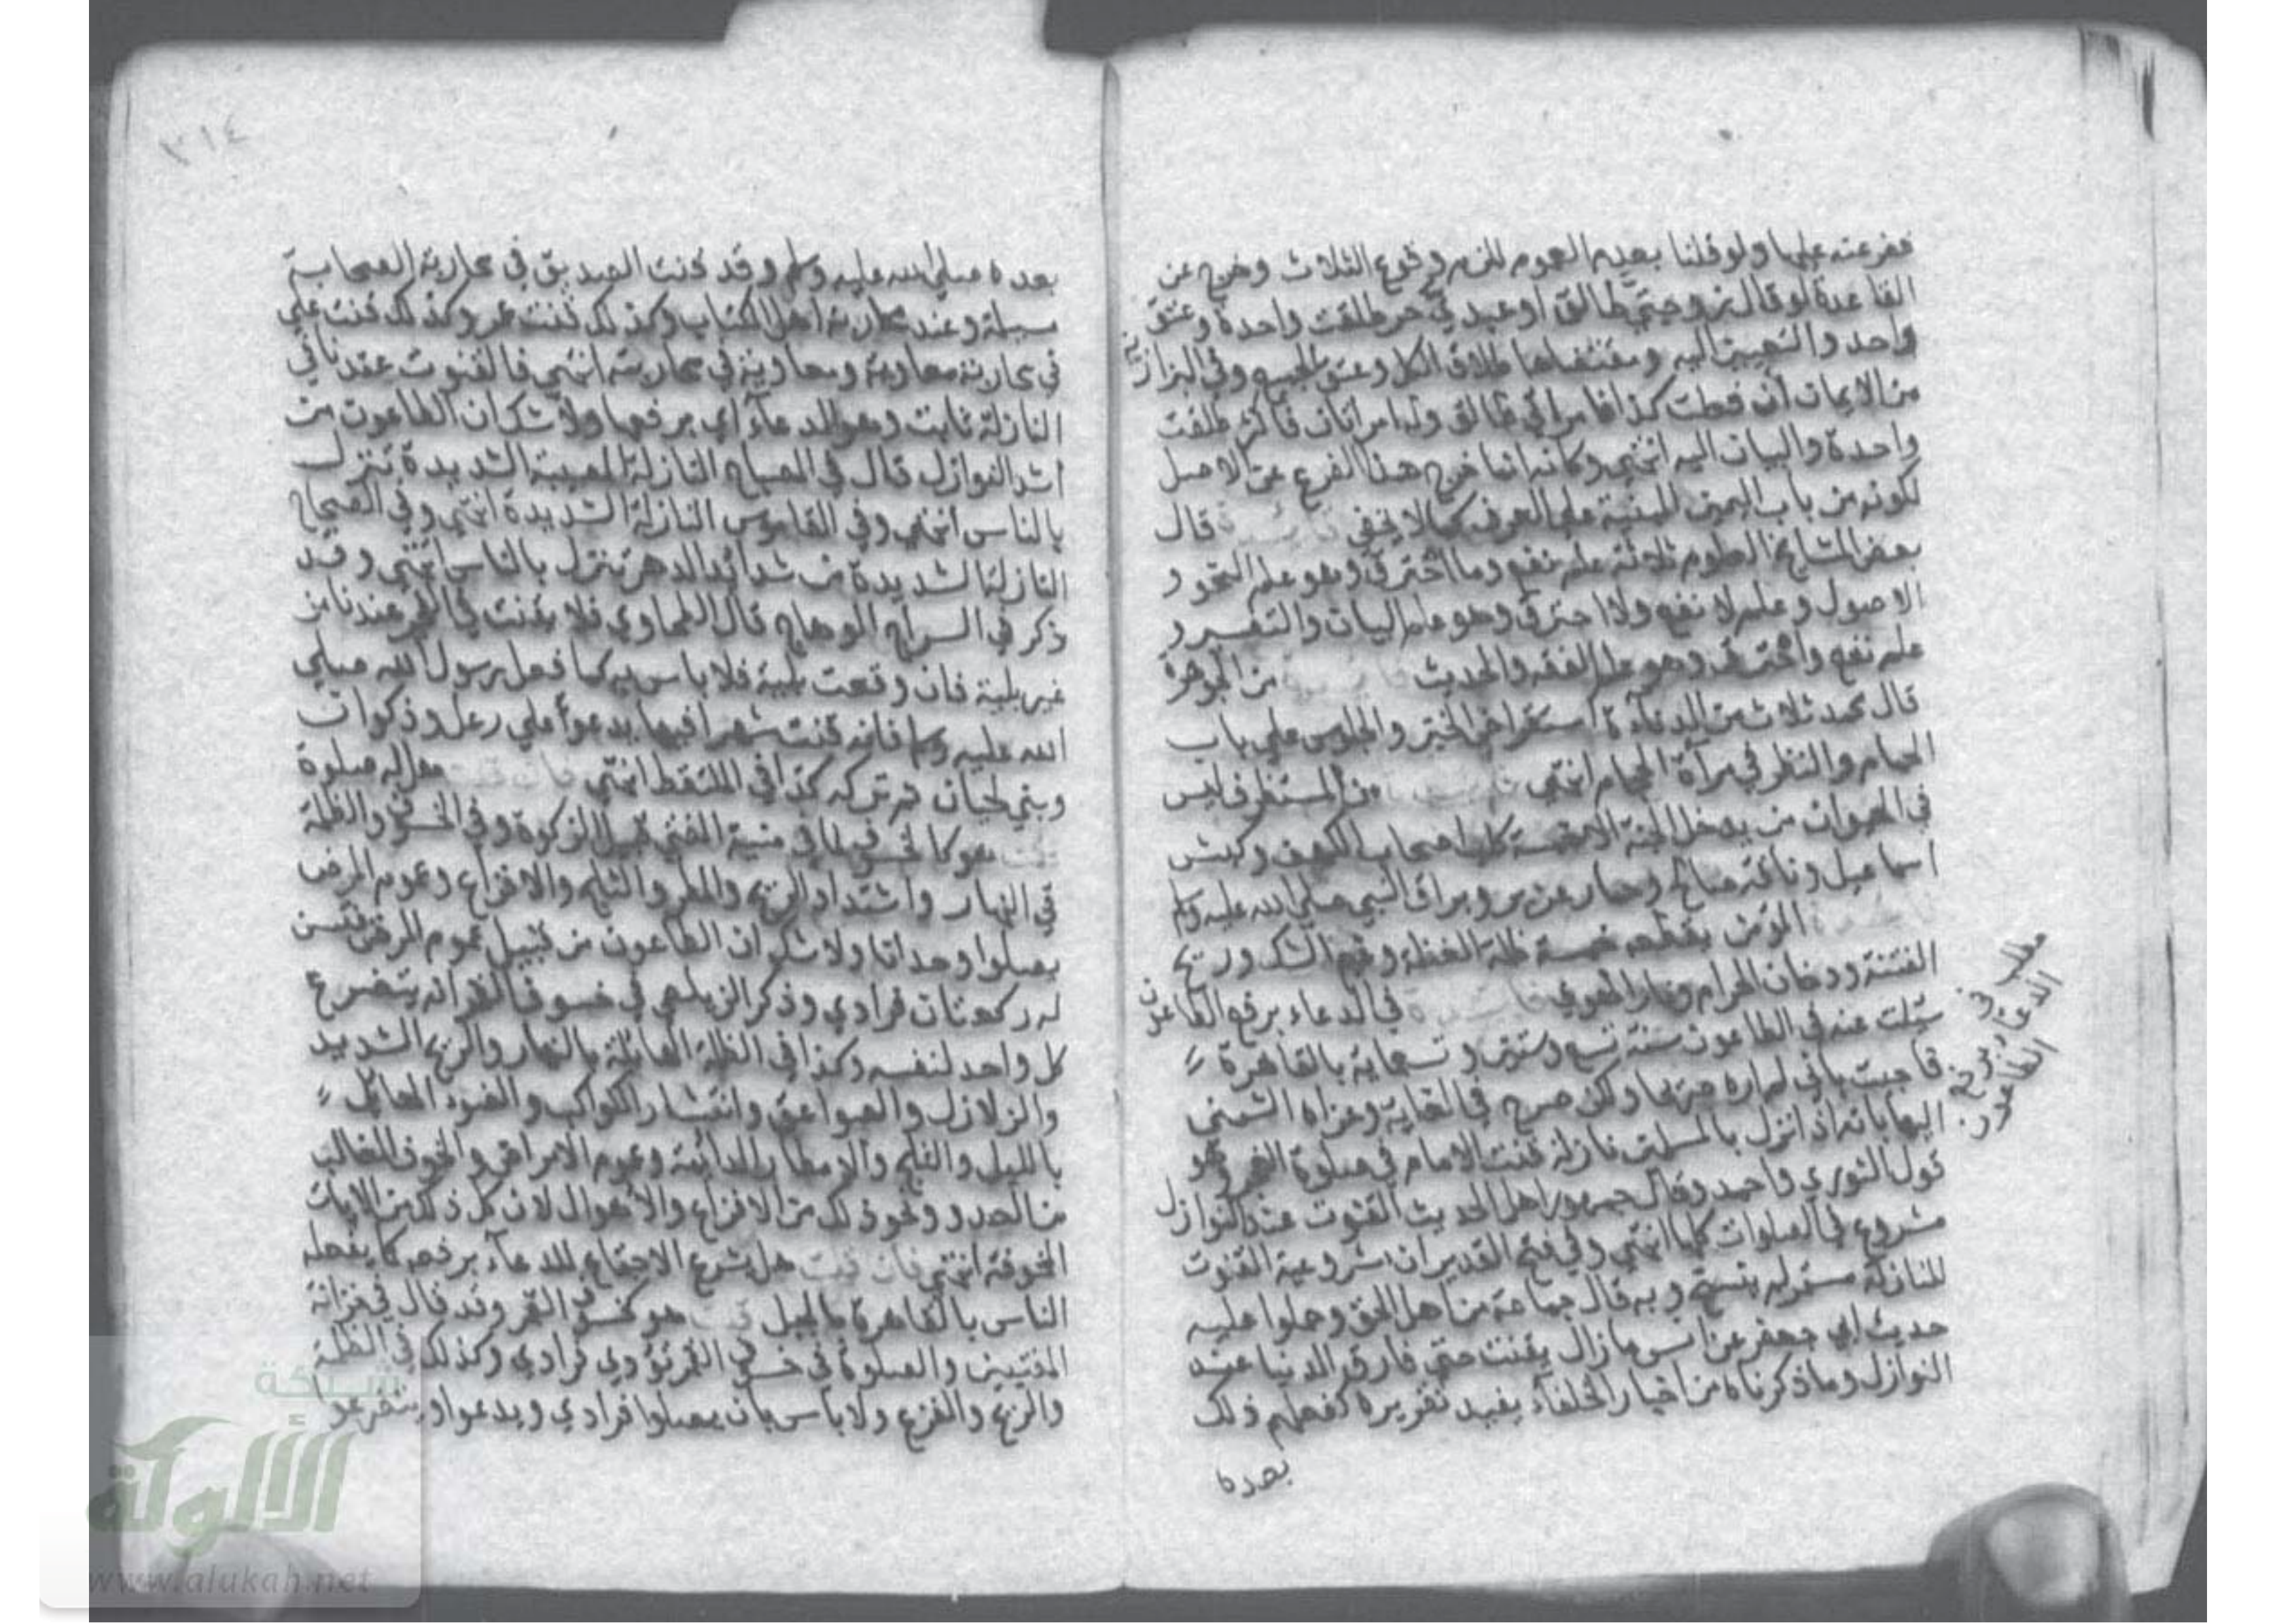 ففرعته عليها ولو قلنا بعدم العموم للزم وقوع الثلاث وخرج عن
القاعدة لو قال زوجتي طالق او عبدي حر طلقت واحدة وعتق
واحد والتعيين اليه ومقتضاها طلاق الكل وعتق الجميع وفي البزازية
من الايمان ان فعلت كذا فامراتي طالق وله امراتان فاكثر طلقت
واحدة والبيان اليه انتهي وكانه انما خرج هذا الفرع عن الاصل
لكونه من باب اليمين المبنية علي العرف كما لا يخفي فائدة قال
بعض المشايخ العلوم ثلاثة علم نضج وما احترق وهو علم النحو و
الاصول وعلم لا نضج ولا احترق وهو علم البيان والتفسير و
علم نضج واحترق وهو علم الفقه والحديث فائدة من الجوهرة
قال محمد ثلاث من الدناءة استقراض الخبز والجلوس علي باب
الحمام والنظر في مرآة الحجام انتهي فائدة من المستظرف ليس
في الحيوان من يدخل الجنة الا خمسة كلب اصحاب الكهف وكبش
اسماعيل وناقة صالح وحمار عزير وبراق النبي صلي الله عليه وسلم
فائدة المؤمن يقطعه خمسة ظلمة الغفلة وغيم الشك وريح
الفتنة ودخان الحرام ونار الهوي فائدة في الدعاء برفع الطاعون
سئلت عنه في الطاعون سنة تسع وستين وتسعماية بالقاهرة
فاجبت باني لم اره صريحا ولكن صرح في الغاية وعزاه الشمني
اليها بانه اذا نزل بالمسلمين نازلة قنت الامام في صلوة الفجر وهو
قول الثوري واحمد وقال جمهور اهل الحديث القنوت عند النوازل
مشروع في الصلوات كلها انتهي وفي فتح القدير ان مشروعية القنوت
للنازلة مستمر لم ينسخ وبه قال جماعة من اهل الحق وحملوا عليه
حديث ابي جعفر عن انس ما زال يقنت حتي فارق الدنيا عند
النوازل وما ذكرناه من اخبار الخلفاء يفيد تقرره كفعلهم ذلك
بعده
مطلب في
الدعاء برفع
الطاعون
٣١٤
بعده صلي الله عليه وسلم وقد قنت الصديق في محاربة الصحابة
مسيلمة وعند محاربة اهل الكتاب وكذلك قنت عمر وكذلك قنت علي
في محاربة معاوية ومعاوية في محاربته انتهي فالقنوت عندنا في
النازلة ثابت وهو الدعاء اي برفعها ولا شك ان الطاعون من
اشد النوازل قال في المصباح النازلة المصيبة الشديدة تنزل
بالناس انتهي وفي القاموس النازلة الشديدة انتهي وفي الصحاح
النازلة الشديدة من شدائد الدهر تنزل بالناس انتهي وقد
ذكر في السراج الوهاج قال الطحاوي فلا يقنت في الفجر عندنا من
غير بلية فان وقعت بلية فلا باس به كما فعل رسول الله صلي
الله عليه وسلم فانه قنت شهرا فيها يدعوا علي رعل وذكوان
وبني لحيان ثم تركه كذا في الملتقط انتهي فان قلت هل له صلوة
قلت هو كالخسوف لما في منية المفتي قبيل الزكوة وفي الخسوف والظلمة
في النهار واشتداد الريح والمطر والثلج والافزاع وعموم المرض
يصلوا وحدانا ولا شك ان الطاعون من قبيل عموم المرض فتسن
له ركعتان فرادي وذكر الزيلعي في خسوف القمر انه يتضرع
كل واحد لنفسه وكذا في الظلمة الهائلة بالنهار والريح الشديد
والزلازل والصواعق وانتشار الكواكب والضوء الهايل
بالليل والثلج والامطار الدائمة وعموم الامراض والخوف الغالب
من العدو ونحو ذلك من الافزاع والاهوال لان كل ذلك من الايات
المخوفة انتهي فان قلت هل يشرع الاجتماع للدعاء برفعه كما يفعله
الناس بالقاهرة بالجبل قلت هو كخسوف القمر وقد قال في خزانة
المفتيين والصلوة في خسوف القمر تؤدي فرادي وكذلك في الظلمة
والريح والفزع ولا باس بان يصلوا فرادي ويدعوا ويتضرعوا
شبكة
الألوكة
www.alukah.net